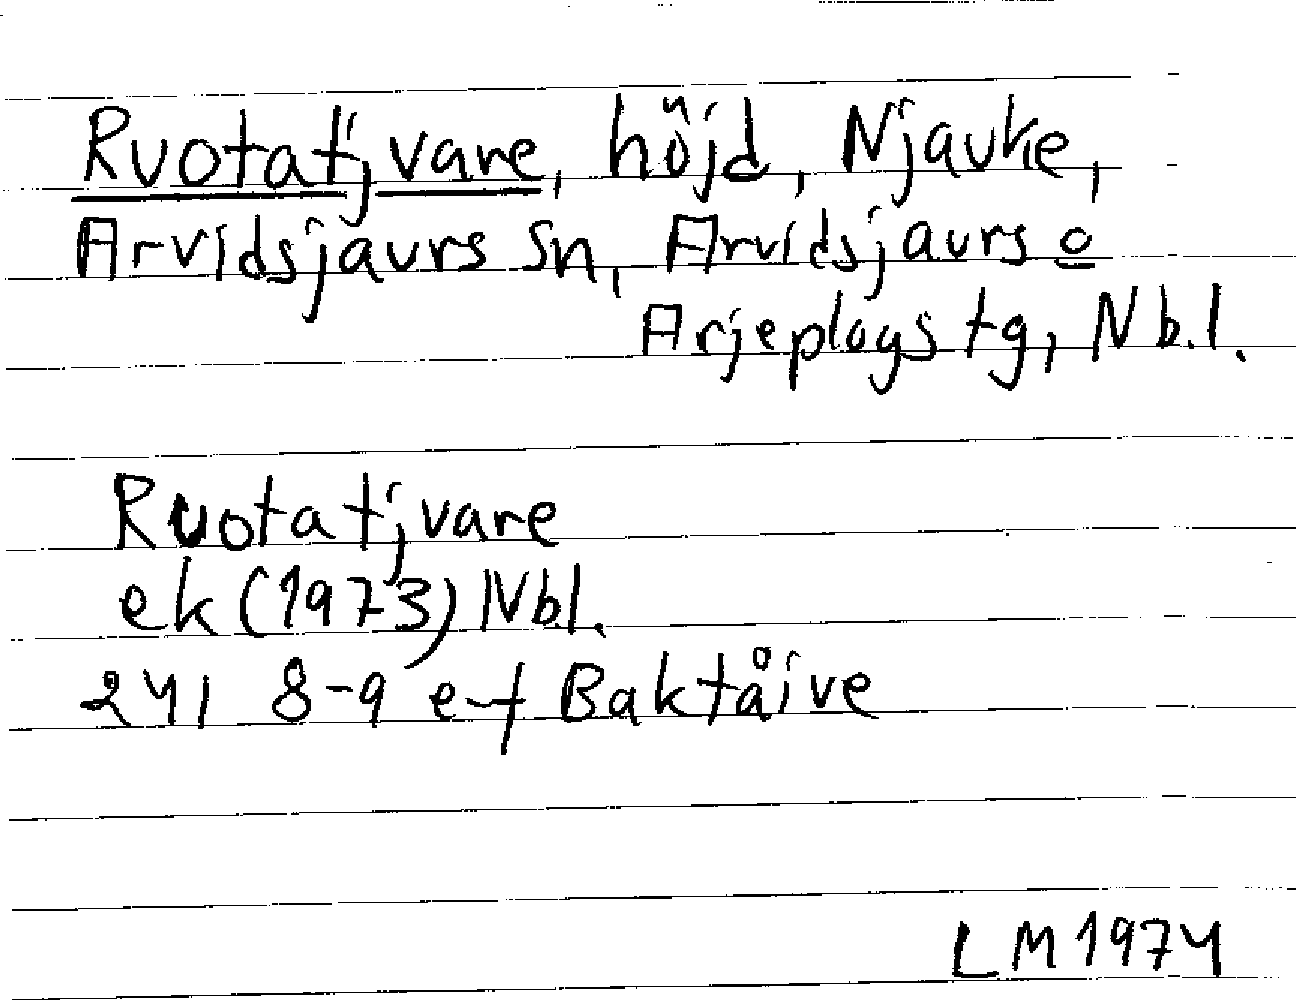 Ruotatjvare, höjd, Njavke,
Arvidsjaurs sn, Arvidsjaurs o
Arjeplogs tg, Nb.l.
Ruotatjvare
ek (1973) Nbl.
241 8-9 e-f Baktåive
LM 1974